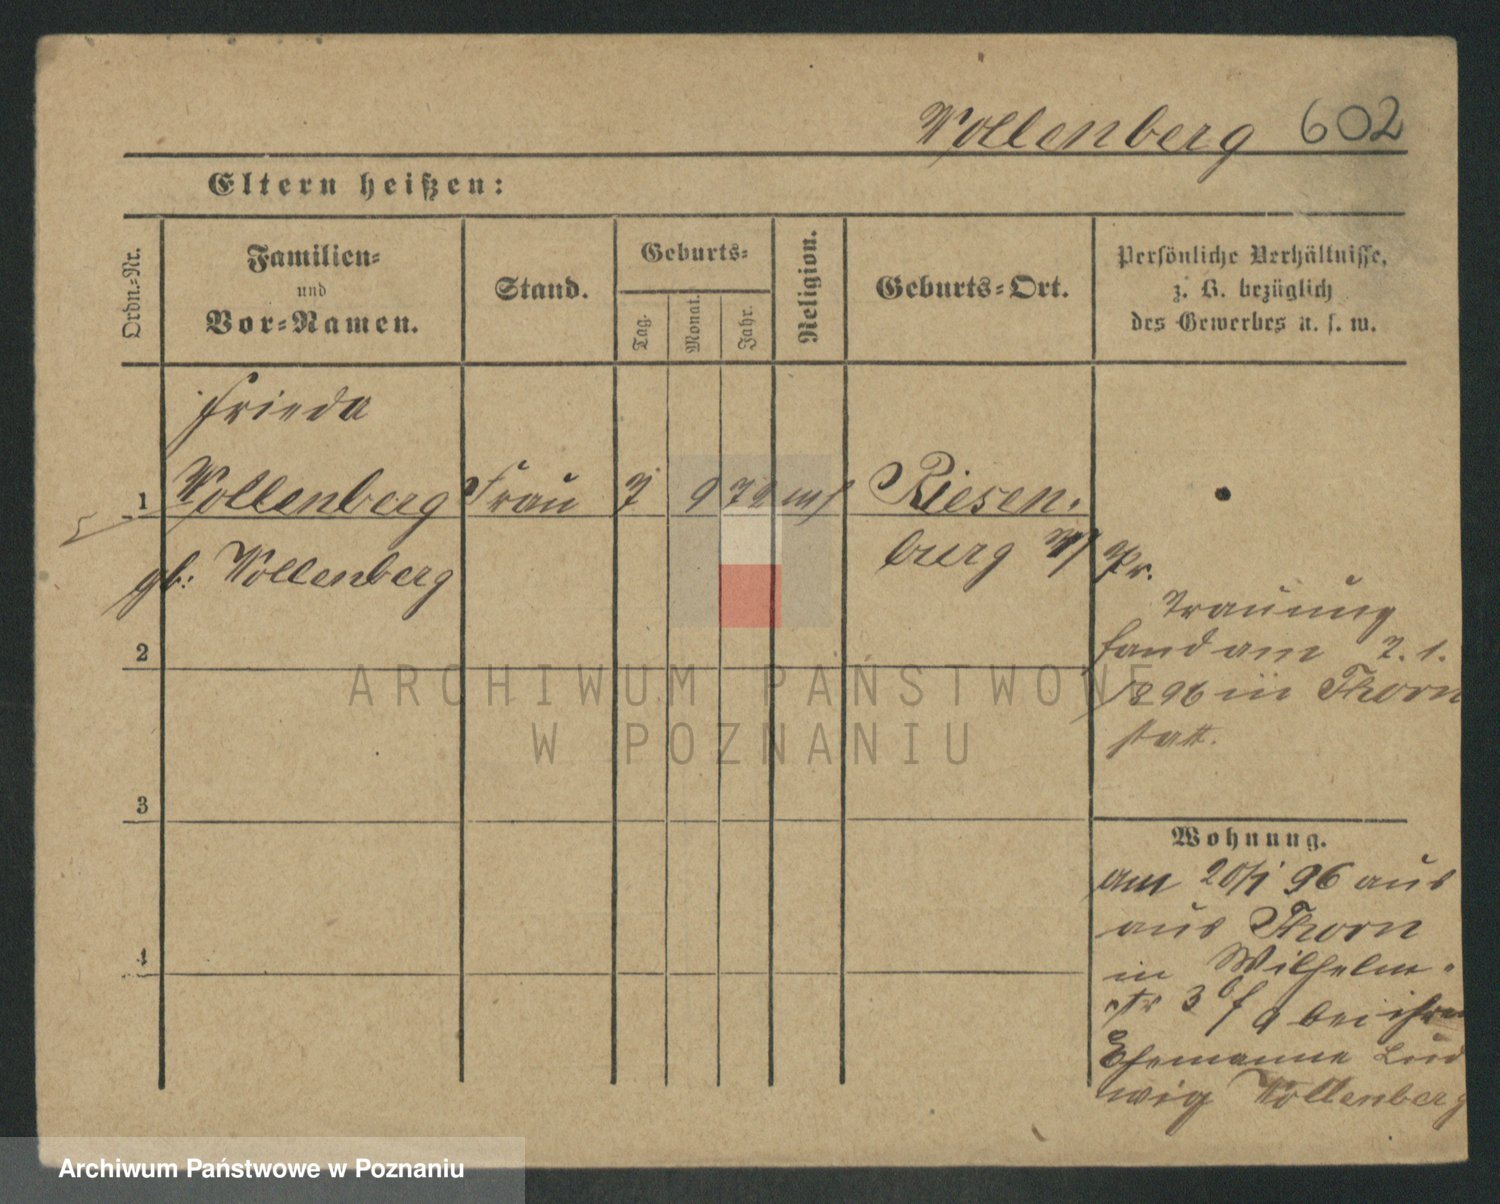 Wollenberg 602
Eltern heißen:
Ordn.-Nr.
Familien-
und
Vor-Namen.
Stand.
Geburts-
Tag.
Monat.
Jahr.
Religion.
Geburts-Ort.
Persönliche Verhältnisse,
z. B. bezüglich
des Gewerbes u. s. w.
Frieda
1 Wollenberg Frau 7 9 72 Riesen-
burg W/Pr.
gb: Wollenberg
Trauung
fand am 7. 1.
1896 in Thorn
statt.
2
3
4
Wohnung.
am 20/1 96 aus
aus Thorn
in Wilhelm-
str 3 bei ihrem
Ehemanne Lud
wig Wollenberg
ARCHIWUM PAŃSTWOWE
W POZNANIU
Archiwum Państwowe w Poznaniu